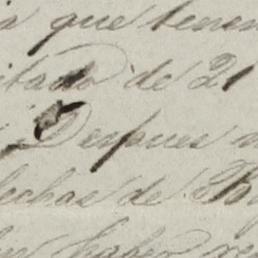 que tenem
itado de 21
Despues
echas de B
haber re